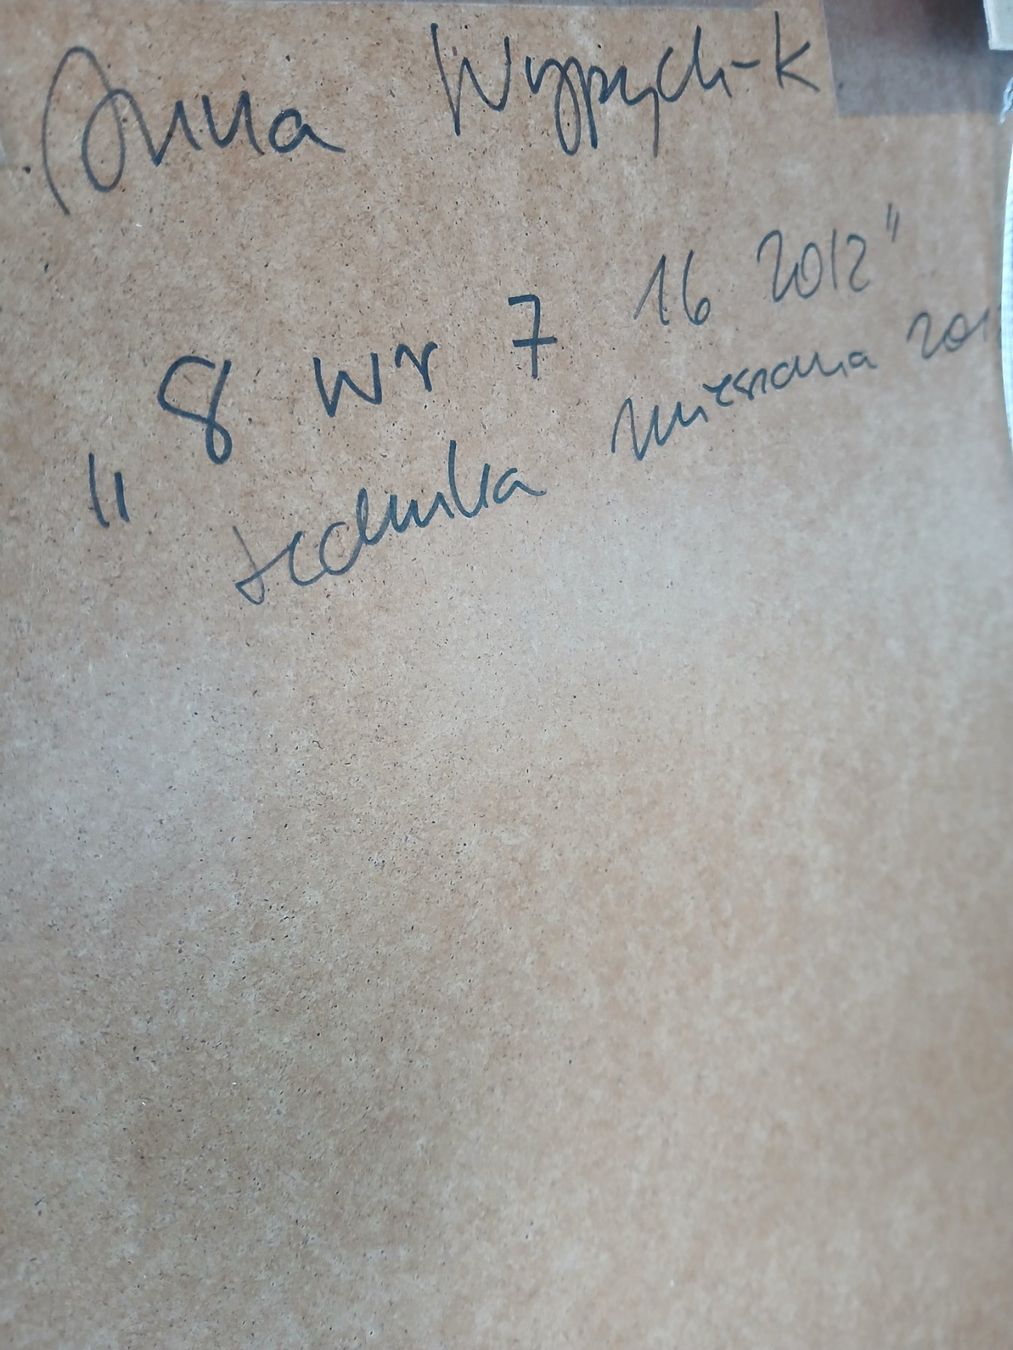 Anna Wypych-K
„8 wr 7 16 2012"
technika mieszana